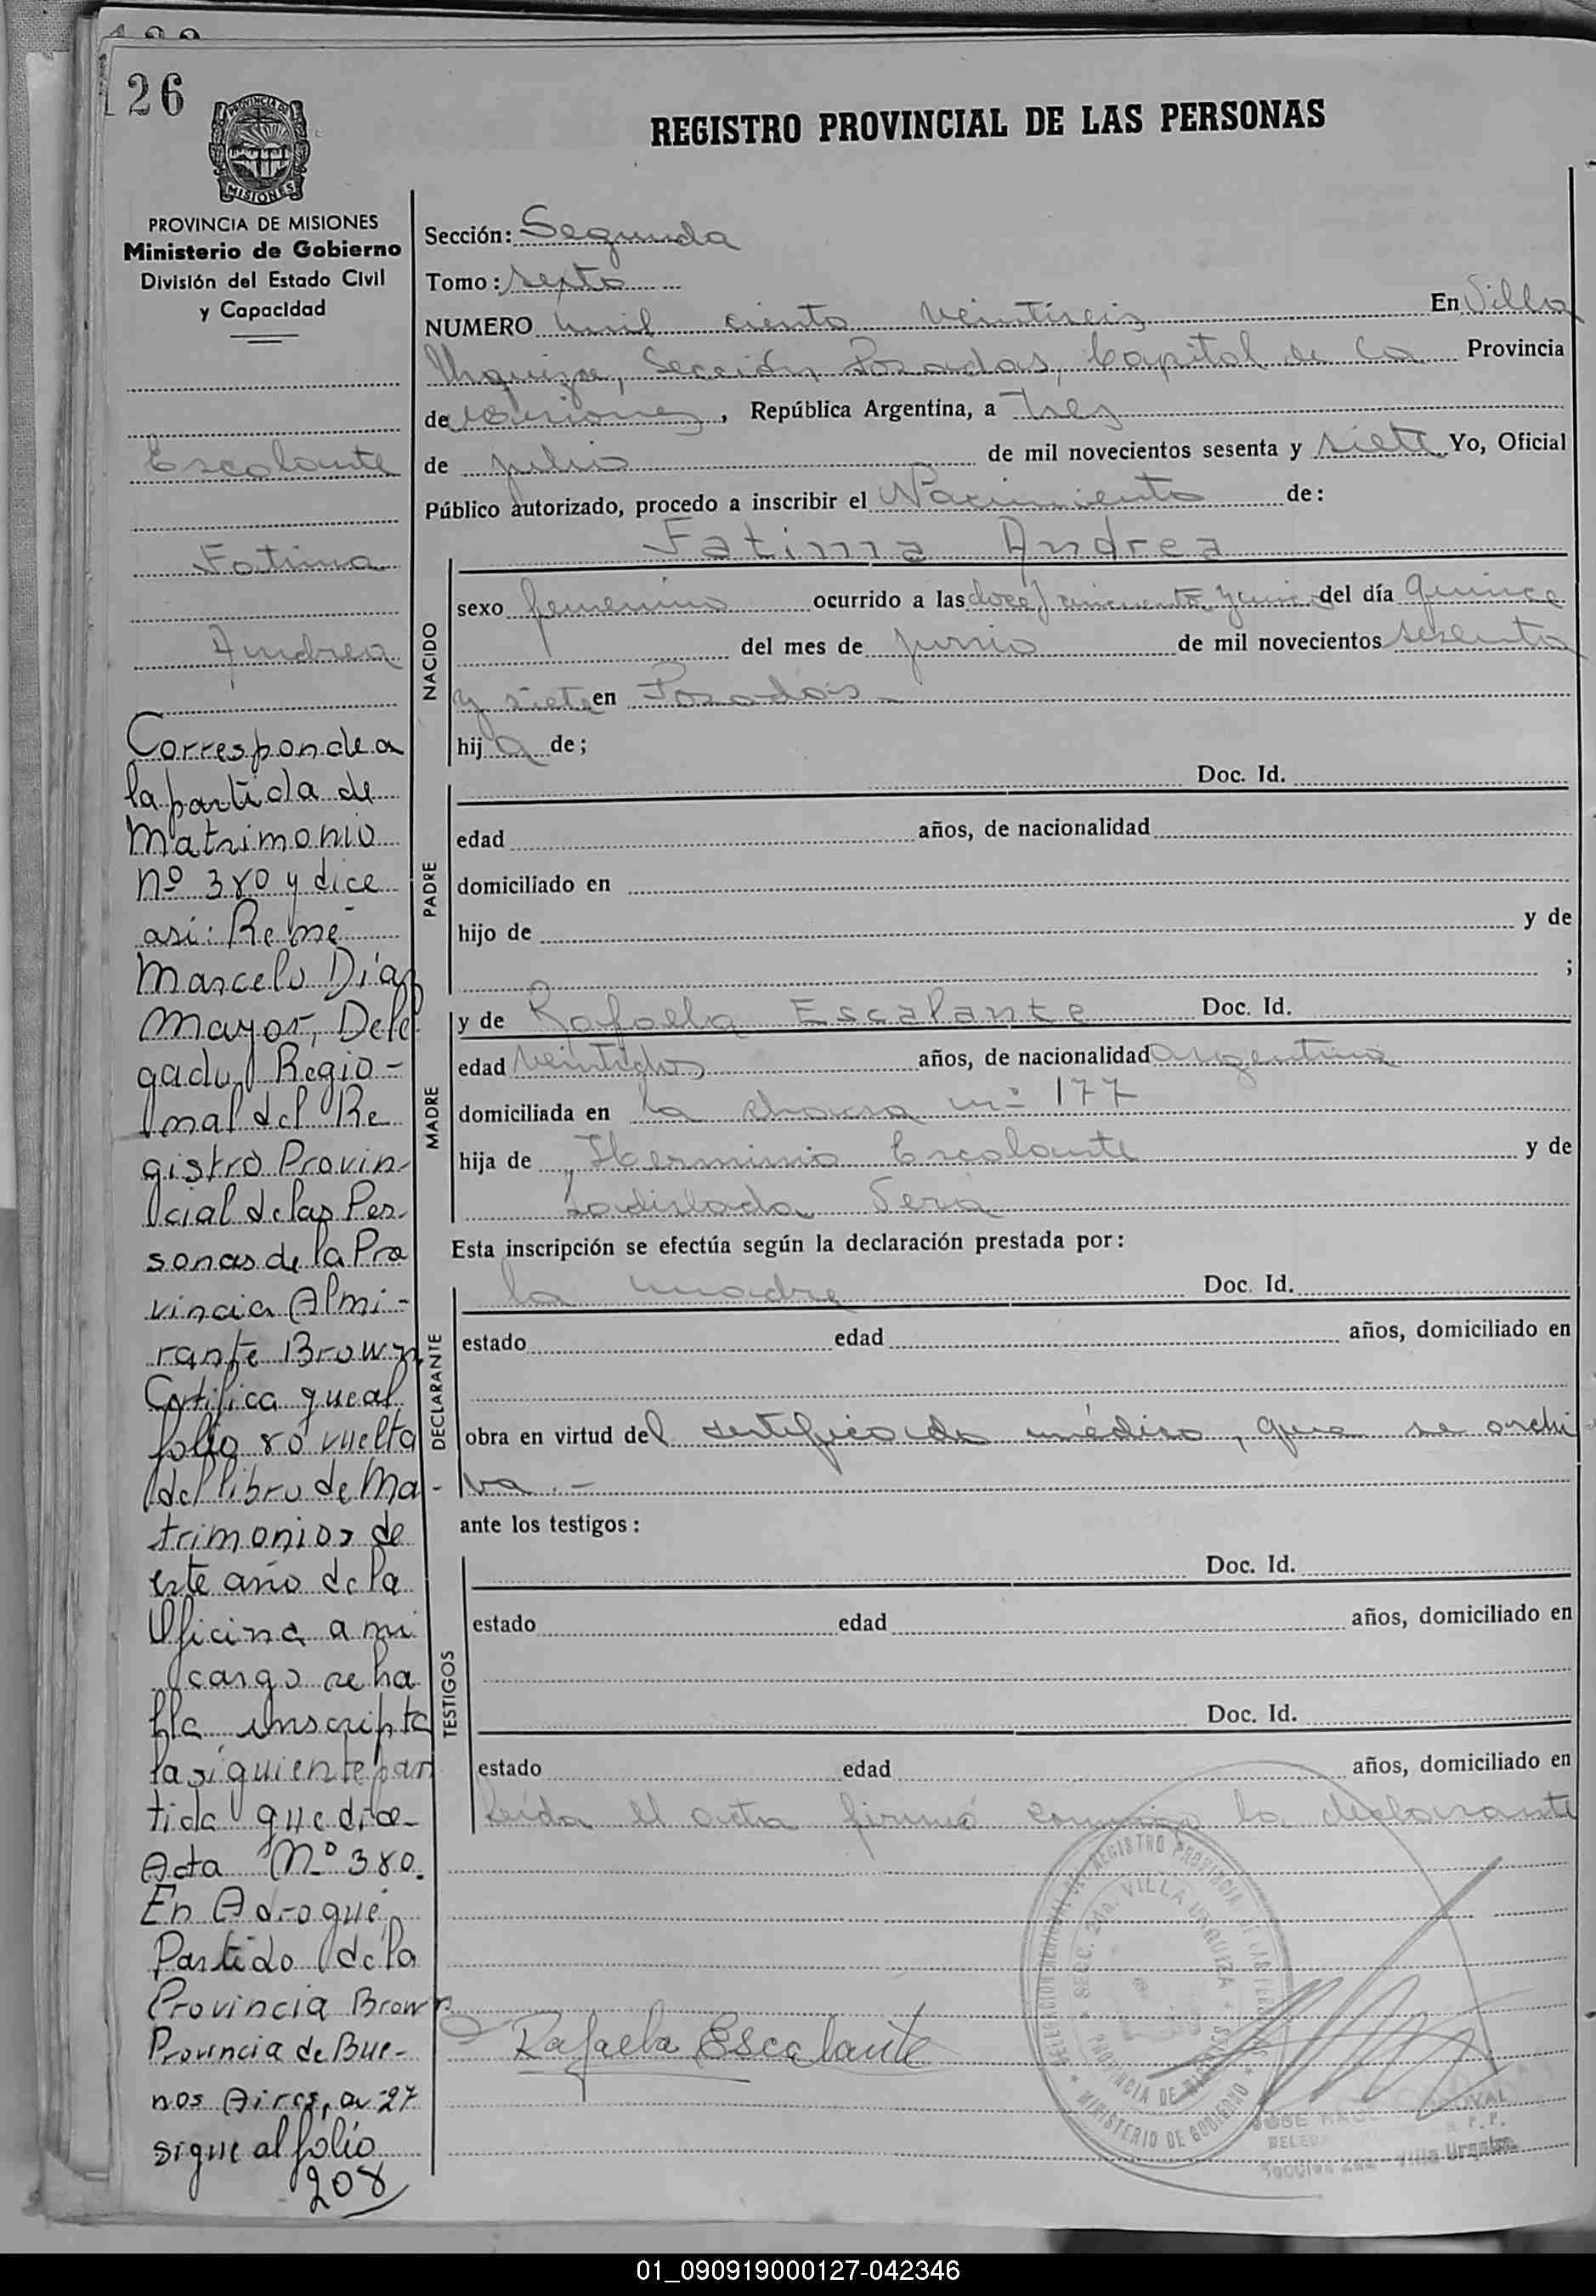 126
REGISTRO PROVINCIAL DE LAS PERSONAS
PROVINCIA DE MISIONES
PROVINCIA DE MISIONES
Ministerio de Gobierno
División del Estado Civil
y Capacidad
Escalante
Fatima
Andrea
Corresponde a
la partida de
Matrimonio
nº 380 y dice
asi: René
Marcelo Díaz
Mayor, Dele
gado Regio-
nal del Re
gistro Provin-
cial de las Per-
sonas de la Pro
vincia Almi-
rante Brown
Certifica que al
folio 80 vuelta
del libro de Ma-
trimonios de
este año de la
Oficina a mi
cargo se ha
lla inscripta
la siguiente par
tida que dice-
Acta Nº 380.
En Adrogué
Partido de la
Provincia Brown
Provincia de Bue-
nos Aires, a 27
sigue al folio
208
Sección: Segunda
Tomo: sexto
NUMERO mil ciento veintiseis En Villa
Urquiza, Sección Posadas, Capital de la Provincia
de Misiones, República Argentina, a tres
de julio de mil novecientos sesenta y siete Yo, Oficial
Público autorizado, procedo a inscribir el Nacimiento de:
Fatima Andrea
NACIDO
sexo femenino ocurrido a las doce y cincuenta y cinco del día quince
del mes de junio de mil novecientos sesenta
y siete en Posadas
hija de;
PADRE
Doc. Id.
edad años, de nacionalidad
domiciliado en
hijo de y de
;
MADRE
y de Rafaela Escalante Doc. Id.
edad veintidos años, de nacionalidad argentina
domiciliada en la chacra nº 177
hija de Herminio Escalante y de
Ladislada Vera
Esta inscripción se efectúa según la declaración prestada por:
DECLARANTE
la madre Doc. Id.
estado edad años, domiciliado en
obra en virtud del sertificado médico, que se archi
va.-
ante los testigos:
TESTIGOS
Doc. Id.
estado edad años, domiciliado en
Doc. Id.
estado edad años, domiciliado en
Leída el acta firmó conmigo la declarante
REGISTRO PROVINCIAL DE LAS PERSONAS
SECC. 2da. VILLA URQUIZA
PROVINCIA DE MISIONES
MINISTERIO DE GOBIERNO
Rafaela Escalante
JOSE
Villa Urquiza
01_090919000127-042346